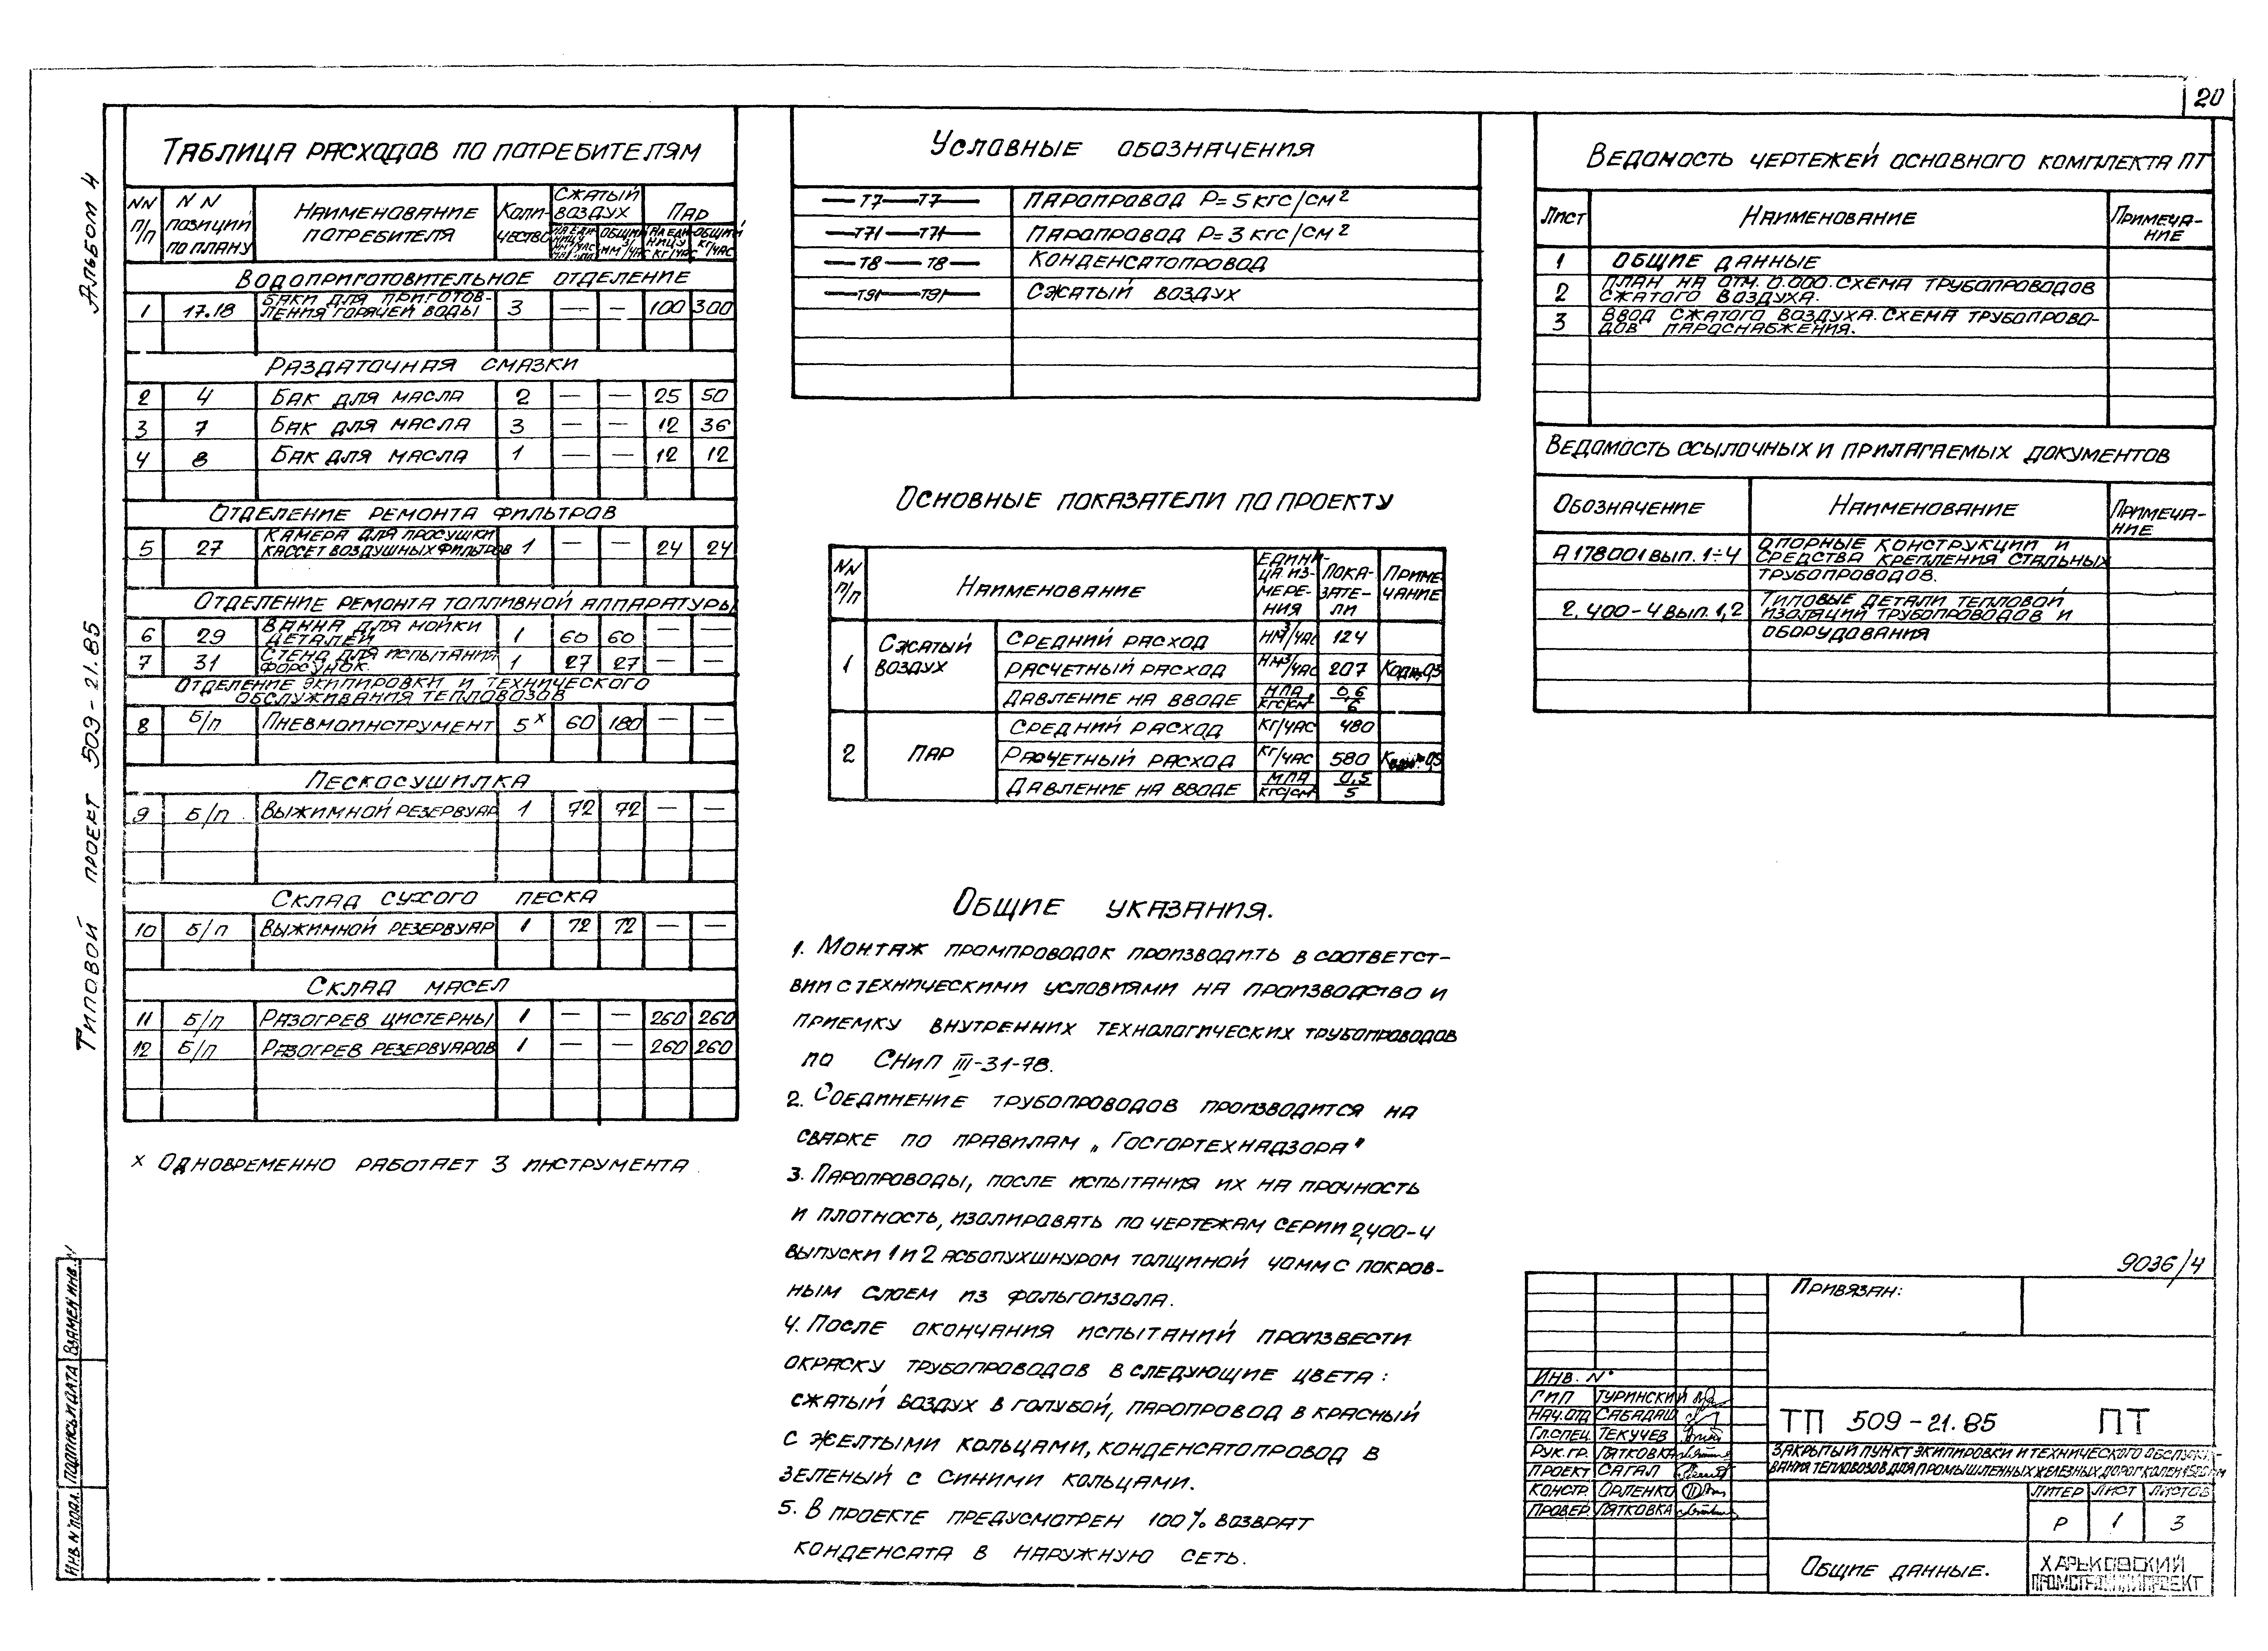 20
Альбом 4
Типовой проект 509-21.85
Таблица расходов по потребителям
NN п/п | NN позиций по плану | Наименование потребителя | Количество | Сжатый воздух | Пар
общий нм³/час | на единицу кг/час | общий кг/час
Водоприготовительное отделение
1 | 17.18 | Баки для приготовления горячей воды | 3 | — | — | 100 | 300
Раздаточная смазки
2 | 4 | Бак для масла | 2 | — | — | 25 | 50
3 | 7 | Бак для масла | 3 | — | — | 12 | 36
4 | 8 | Бак для масла | 1 | — | — | 12 | 12
Отделение ремонта фильтров
5 | 27 | Камера для просушки кассет воздушных фильтров | 1 | — | — | 24 | 24
Отделение ремонта топливной аппаратуры
6 | 29 | Ванна для мойки деталей | 1 | 60 | 60 | — | —
7 | 31 | Стенд для испытания форсунок. | 1 | 27 | 27 | — | —
Отделение экипировки и технического
обслуживания тепловозов
8 | б/п | Пневмоинструмент | 5ˣ | 60 | 180 | — | —
Пескосушилка
9 | б/п | Выжимной резервуар | 1 | 72 | 72 | — | —
Склад сухого песка
10 | б/п | Выжимной резервуар | 1 | 72 | 72 | — | —
Склад масел
11 | б/п | Разогрев цистерны | 1 | — | — | 260 | 260
12 | б/п | Разогрев резервуаров | 1 | — | — | 260 | 260
х Одновременно работает 3 инструмента
Условные обозначения
—Т7—Т7— | Паропровод Р=5кгс/см²
—Т71—Т71— | Паропровод Р=3кгс/см²
—Т8—Т8— | Конденсатопровод
—Т91—Т91— | Сжатый воздух
Основные показатели по проекту
NN п/п | Наименование | Единица измерения | Показатели | Примечание
1 | Сжатый воздух | Средний расход | нм³/час | 124
Расчетный расход | нм³/час | 207
Давление на вводе | МПа/кгс/см² | 0,6/6
2 | Пар | Средний расход | кг/час | 480
Расчетный расход | кг/час | 580
Давление на вводе | МПа/кгс/см² | 0,5/5
Общие указания.
1. Монтаж промпроводок производить в соответст-
вии с техническими условиями на производство и
приемку внутренних технологических трубопроводов
по СНиП III-31-78.
2. Соединение трубопроводов производится на
сварке по правилам „Госгортехнадзора"
3. Паропроводы, после испытания их на прочность
и плотность, изолировать по чертежам серии 2,400-4
выпуски 1 и 2 асбопухшнуром толщиной 40мм с покров-
ным слоем из фольгоизола.
4. После окончания испытаний произвести
окраску трубопроводов в следующие цвета:
сжатый воздух в голубой, паропровод в красный
с желтыми кольцами, конденсатопровод в
зеленый с синими кольцами.
5. В проекте предусмотрен 100% возврат
конденсата в наружную сеть.
Ведомость чертежей основного комплекта ПТ
Лист | Наименование | Примечание
1 | Общие данные
2 | План на отм. 0.000. Схема трубопроводов
сжатого воздуха.
3 | Ввод сжатого воздуха. Схема трубопрово-
дов пароснабжения.
Ведомость ссылочных и прилагаемых документов
Обозначение | Наименование | Примечание
А178001 вып. 1÷4 | Опорные конструкции и
средства крепления стальных
трубопроводов.
2.400-4 вып. 1,2 | Типовые детали тепловой
изоляции трубопроводов и
оборудования
9036/4
Привязан:
Инв. N°
ГИП | Туринский
Нач.отд | Сабадаш
Гл.спец | Текучев
Рук.гр. | Пятковка
Проект | Сагал
Констр. | Орленко
Провер. | Пятковка
ТП 509-21.85 ПТ
Закрытый пункт экипировки и технического обслужи-
вания тепловозов для промышленных железных дорог колеи 1520мм
Литер | Лист | Листов
Р | 1 | 3
Общие данные.
Харьковский
Промстройниипроект
Инв. N подл. | Подпись и дата | Взамен инв. N